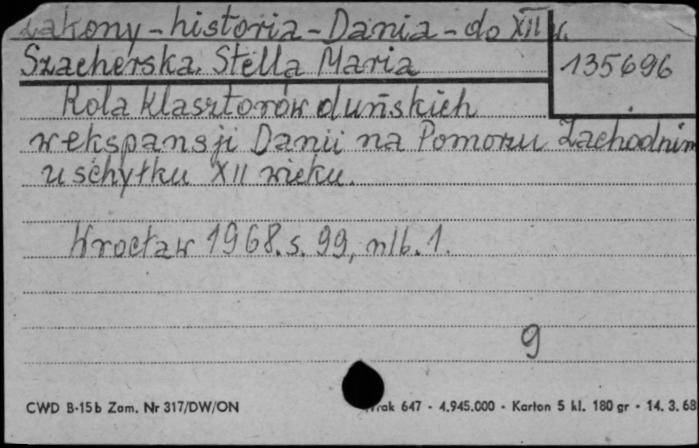 Zakony - historia - Dania - do XII w.
Szacherska, Stella Maria
135696
Rola klasztorów duńskich
w ekspansji Danii na Pomorzu Zachodnim
u schyłku XII wieku.
Wrocław 1968. s. 99, nlb. 1.
9
CWD B-15b Zam. Nr 317/DW/ON
647 - 4.945.000 - Karton 5 kl. 180 gr - 14. 3. 68